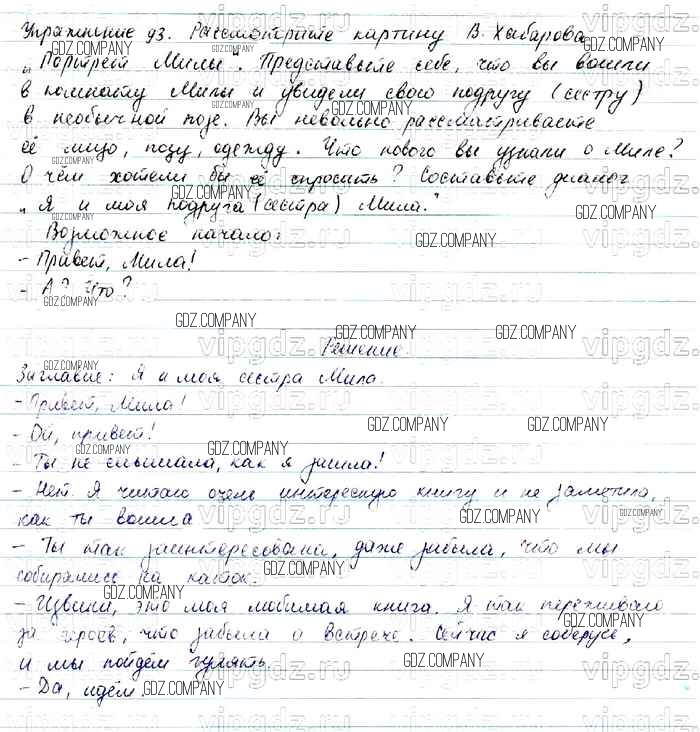 Упражнение 93. Рассмотрите картину В. Хабарова
„Портрет Милы". Представьте себе, что вы вошли
в комнату Милы и увидели свою подругу (сестру)
в необычной позе. Вы невольно рассматриваете
её лицо, позу, одежду. Что нового вы узнали о Миле?
О чём хотели бы её спросить? Составьте диалог
„Я и моя подруга (сестра) Мила."
Возможное начало:
- Привет, Мила!
- А? Что?
Решение.
Заглавие: Я и моя сестра Мила.
- Привет, Мила!
- Ой, привет!
- Ты не слышала, как я зашла!
- Нет. Я читаю очень интересную книгу и не заметила,
как ты вошла
- Ты так заинтересована, даже забыла, что мы
собирались на каток.
- Извини, это моя любимая книга. Я так переживаю
за героев, что забыла о встрече. Сейчас я соберусь,
и мы пойдём гулять.
- Да, идём.
GDZ.COMPANY
vipgdz.ru